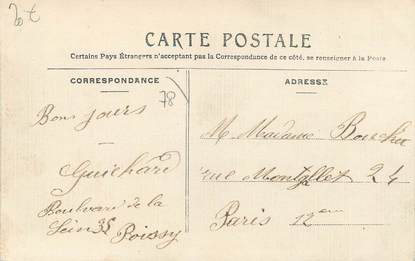 CARTE POSTALE
Certains Pays Étrangers n'acceptant pas la Correspondance de ce côté, se renseigner à la Poste
CORRESPONDANCE
78
Bons jours
Guichard
Boulevard de la
Seine 35 Poissy
ADRESSE
M. Madame
rue Montgallet 24
Paris 12eme